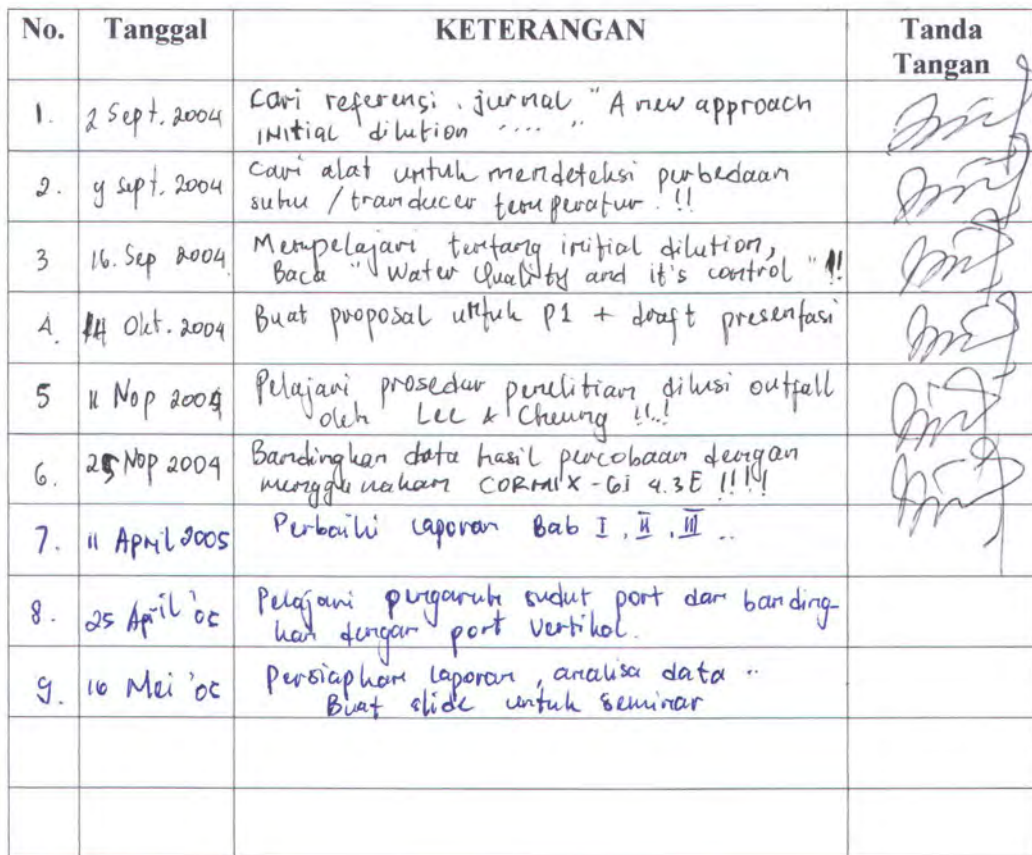 No. Tanggal KETERANGAN Tanda Tangan
1. 2 Sept. 2004 Cari referensi. jurnal " A new approach
initial dilution ..... "
2. 9 Sept. 2004 Cari alat untuk mendeteksi perbedaan
suhu / tranducer temperatur. !!
3 16. Sep 2004 Mempelajari tentang initial dilution,
Baca " Water Quality and it's control " !!
4. 14 Okt. 2004 Buat proposal untuk P1 + draft presentasi
5 11 Nop 2004 Pelajari prosedur penelitian dilusi outfall
oleh Lee & Cheung !!..!
6. 25 Nop 2004 Bandingkan data hasil percobaan dengan
menggunakan CORMIX-GI 4.3E !!!!
7. 11 April 2005 Perbaiki laporan Bab I, II, III ..
8. 25 April '05 Pelajari pengaruh sudut port dan banding-
kan dengan port vertikal.
9. 16 Mei '05 Persiapkan laporan, analisa data ..
Buat slide untuk seminar